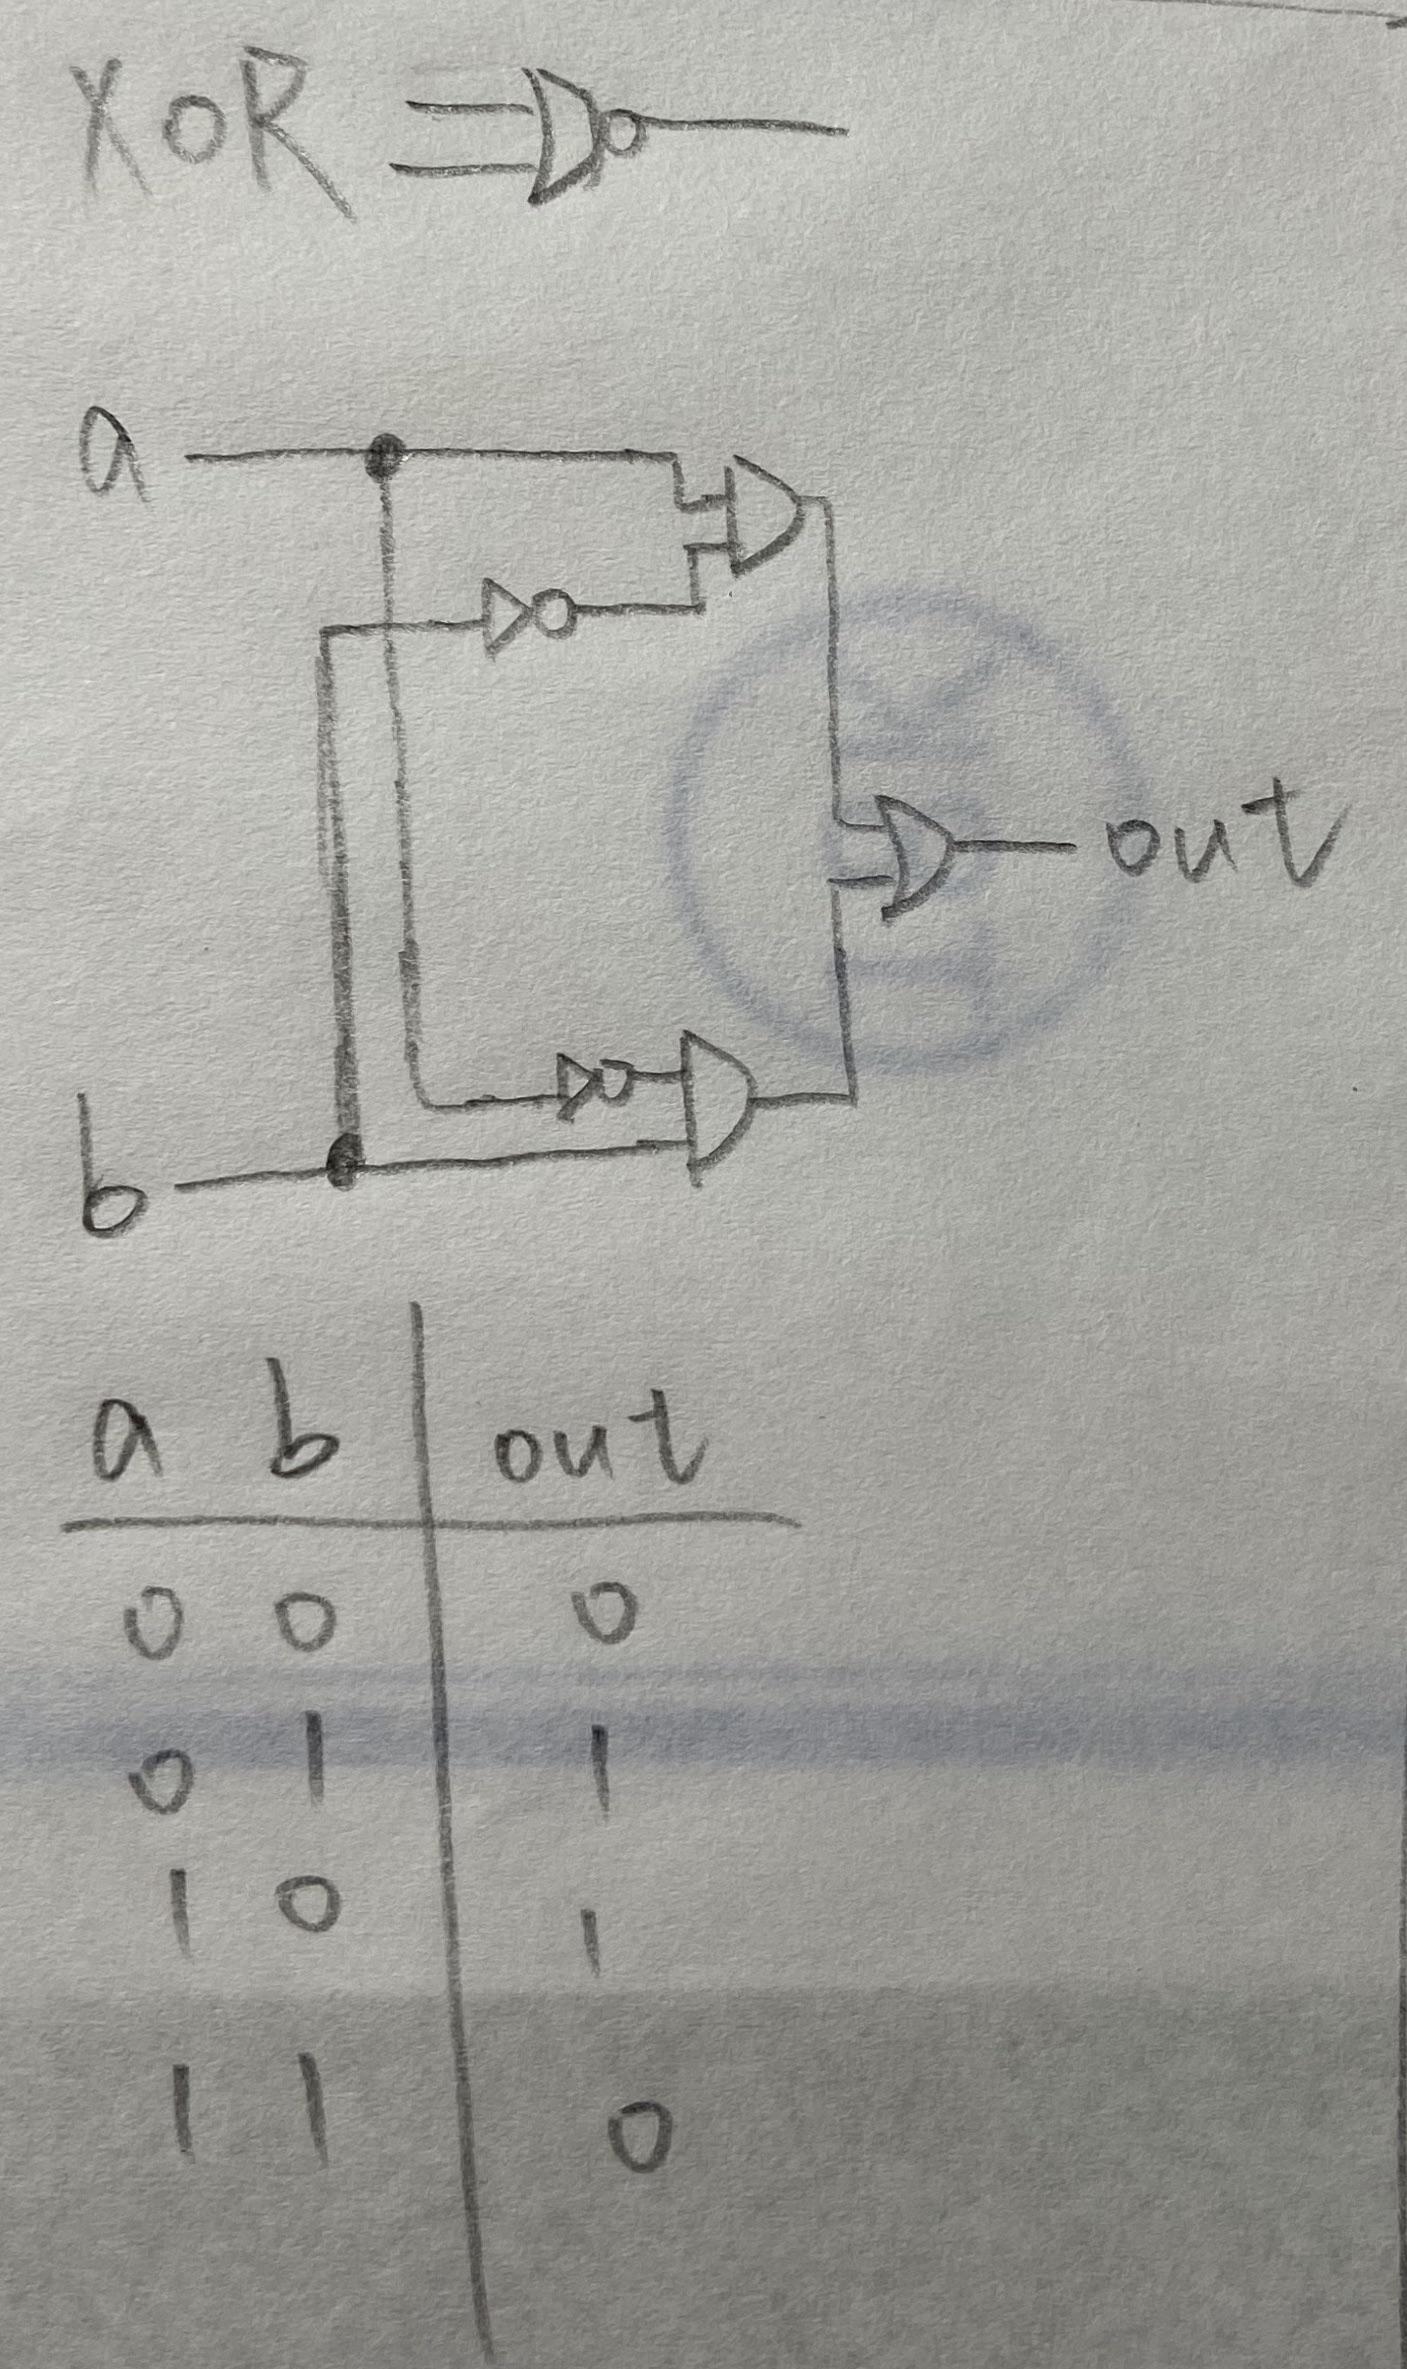 XOR
a
out
b
a b out
0 0 0
0 1 1
1 0 1
1 1 0